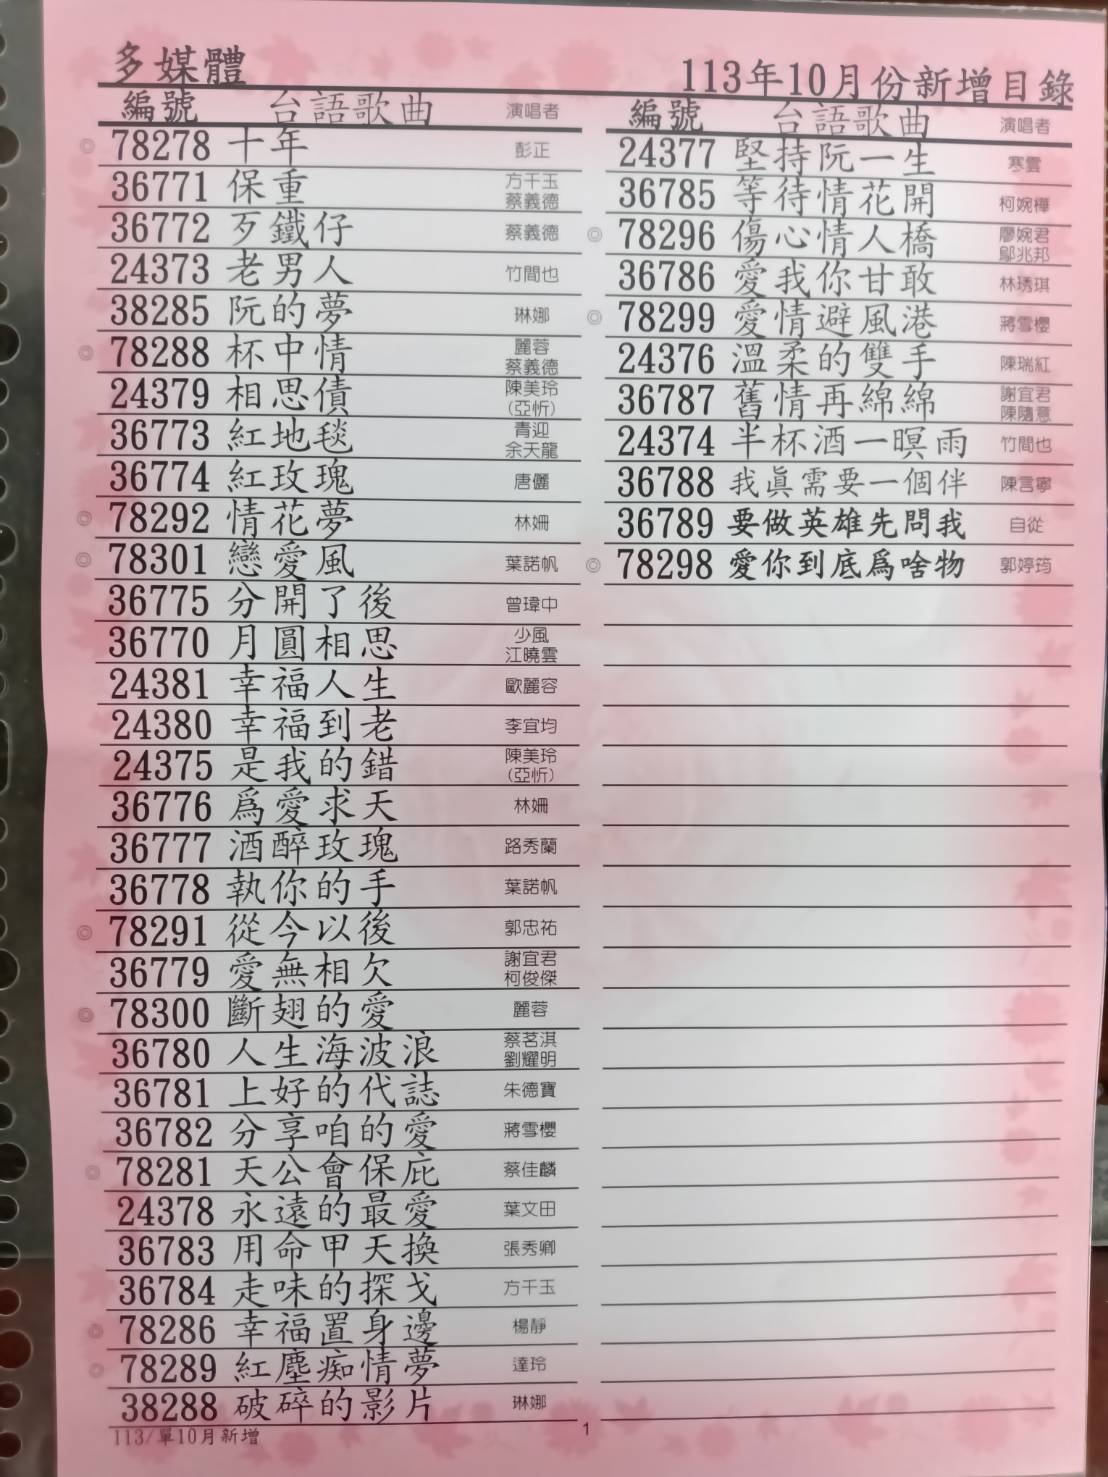 多媒體
113年10月份新增目錄
編號 台語歌曲 演唱者
◎ 78278 十年 彭正
36771 保重 方千玉 蔡義德
36772 歹鐵仔 蔡義德
24373 老男人 竹間也
38285 阮的夢 琳娜
◎ 78288 杯中情 麗蓉 蔡義德
24379 相思債 陳美玲 (亞忻)
36773 紅地毯 青迎 余天龍
36774 紅玫瑰 唐儷
◎ 78292 情花夢 林姍
◎ 78301 戀愛風 葉諾帆
36775 分開了後 曾瑋中
36770 月圓相思 少風 江曉雲
24381 幸福人生 歐麗容
24380 幸福到老 李宜均
24375 是我的錯 陳美玲 (亞忻)
36776 爲愛求天 林姍
36777 酒醉玫瑰 路秀蘭
36778 執你的手 葉諾帆
◎ 78291 從今以後 郭忠祐
36779 愛無相欠 謝宜君 柯俊傑
◎ 78300 斷翅的愛 麗蓉
36780 人生海波浪 蔡茗淇 劉耀明
36781 上好的代誌 朱德寶
36782 分享咱的愛 蔣雪櫻
◎ 78281 天公會保庇 蔡佳麟
24378 永遠的最愛 葉文田
36783 用命甲天換 張秀卿
36784 走味的探戈 方千玉
◎ 78286 幸福置身邊 楊靜
◎ 78289 紅塵痴情夢 達玲
38288 破碎的影片 琳娜
編號 台語歌曲 演唱者
24377 堅持阮一生 寒雲
36785 等待情花開 柯婉樺
◎ 78296 傷心情人橋 廖婉君 鄔兆邦
36786 愛我你甘敢 林琇琪
◎ 78299 愛情避風港 蔣雪櫻
24376 溫柔的雙手 陳瑞紅
36787 舊情再綿綿 謝宜君 陳隨意
24374 半杯酒一暝雨 竹間也
36788 我眞需要一個伴 陳言寧
36789 要做英雄先問我 自從
◎ 78298 愛你到底爲啥物 郭婷筠
113/單10月新增
1